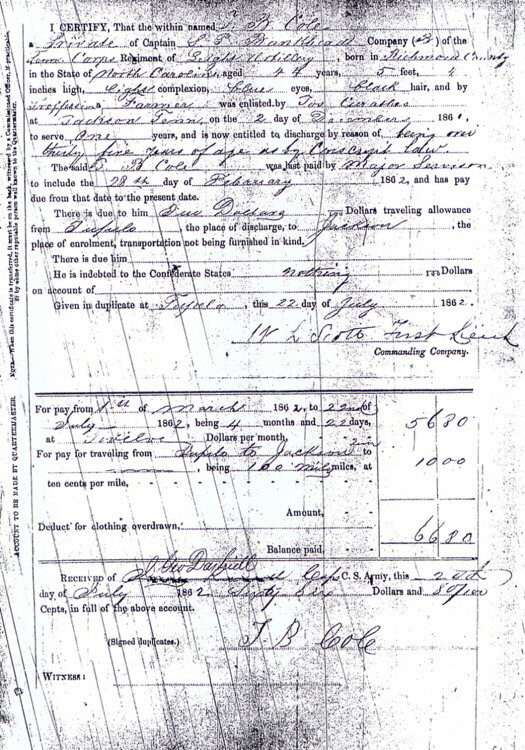 I CERTIFY, That the within named T. B. Cole
a Private of Captain S. P. Bankhead Company (B) of the
Corps Regiment of Light Artillery, born in Richmond County
in the State of North Carolina, aged 44 years, 5 feet, 4
inches high, Light complexion, blue eyes, black hair, and by
profession, Farmer was enlisted by
at Jackson Tenn, on the 2 day of December 1861,
to serve one years, and is now entitled to discharge by reason of being over
thirty five years of age as by Conscript Law.
The said B Cole was last paid by Major
to include the 28th day of February 1862, and has pay
due from that date to the present date.
There is due to him Ten Dollars Dollars traveling allowance
from Tupelo, the place of discharge, to Jackson, the
place of enrolment, transportation not being furnished in kind.
There is due him
He is indebted to the Confederate States nothing Dollars
on account of
Given in duplicate at Tupelo, this 22 day of July 1862.
W L Scott First Lieut
Commanding Company.
NOTE.—When this certificate is transferred, it must be on the back, witnessed by a Commissioned Officer, if practicable,
or by some other reputable person well known to the Quartermaster.
ACCOUNT TO BE MADE BY QUARTERMASTER.
For pay from 1st of March 1862, to 22nd of
July 1862, being 4 months and 22 days,
at Twelve Dollars per month, 56 80
For pay for traveling from Tupelo to Jackson to
being 100 miles, at 10 00
ten cents per mile,
Amount,
Deduct for clothing overdrawn,
Balance paid, 66 80
RECEIVED of Cap C. S. Army, this
day of July 1862 Sixty Six Dollars and 80/100
Cents, in full of the above account.
(Signed duplicates.) T B Cole
WITNESS: